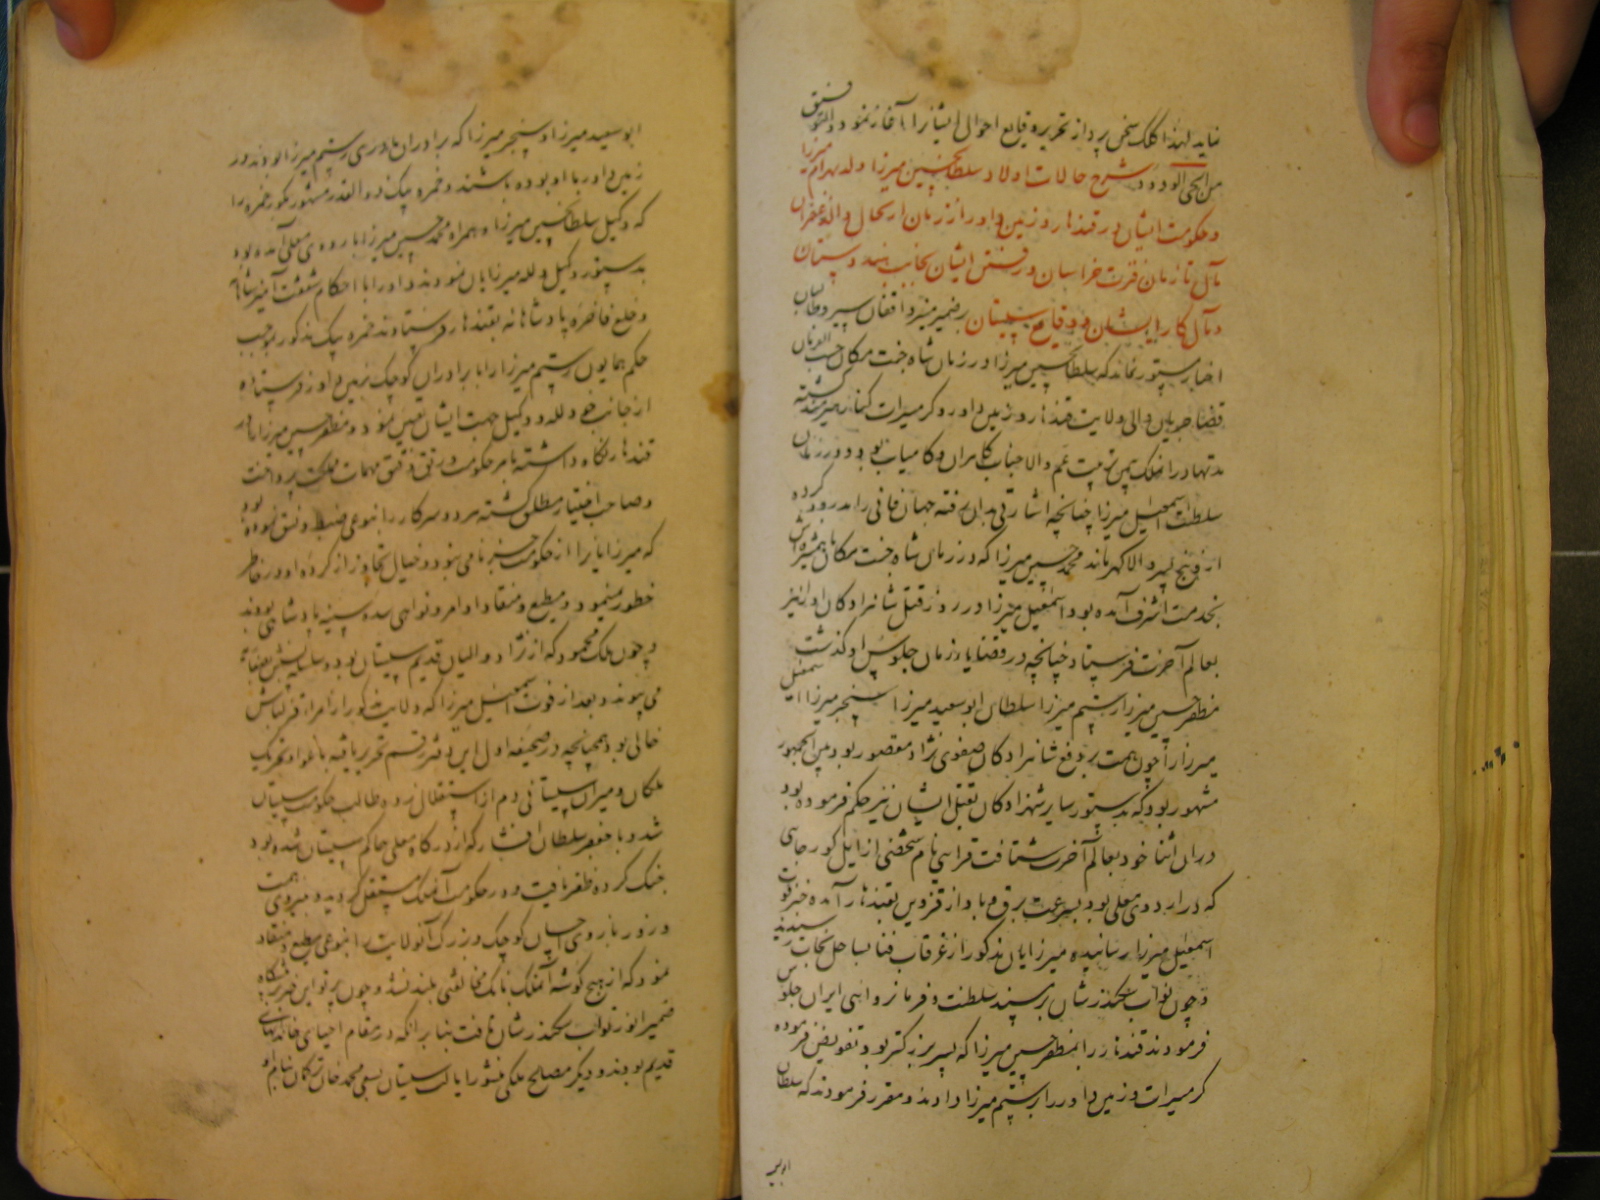 نماید لهذا کلک سخن پرداز تحریر وقایع احوال ایشانرا آغاز نمود و التوفیق
من الحی الودود شرح حالات اولاد سلطان حسین میرزا ولد بهرام میرزا
و حکومت ایشان در قندهار و زمین داور از زمان ارتحال والد غفران
مآل تا زمان فترت خراسان و رفتن ایشان بجانب هندوستان
و مآل کار ایشان و وقایع سیستان بر ضمیر منیر واقفان سیر و طالبان
اخبار مستور نماند که سلطان حسین میرزا در زمان شاه جنت مکان حسب الفرمان
قضا جریان والی ولایت قندهار و زمین داور و گرمسیرات کنار هیرمند گشته
مدتها در آن ملک بتربیت عم والاجناب کامران و کامیاب بود و در زمان
سلطنت اسمعیل میرزا چنانچه اشارتی بدان رفته جهان فانی را بدرود کرده
از او پنج پسر والا گهر ماند محمد حسین میرزا که در زمان شاه جنت مکان
بخدمت اشرف آمده بود اسمعیل میرزا در روز قتل شاهزادگان او را نیز
بعالم آخرت فرستاد چنانچه در قضایاء زمان جلوس او گذشت
مظفر حسین میرزا رستم میرزا سلطان ابوسعید میرزا سنجر میرزا اسمعیل
میرزا را چون همت بر دفع شاهزادگان صفوی نژاد مقصور بود بین الجمهور
مشهور بود که بدستور سایر شهزادگان بقتل ایشان نیز حکم فرموده بود
در آن اثنا خود بعالم آخرت شتافت قرا بی نام شخصی از ایل کور
که در اردوی معلی بود بسرعت برق و باد از قزوین بقندهار آمده خبر فوت
اسمعیل میرزا رسانیده میرزایان مذکور از غرقاب فنا بساحل نجات رسیدند
و چون نواب سکندر شان بر مسند سلطنت و فرمانروائی ایران جلوس
فرمودند قندهار را بمظفر حسین میرزا که پسر بزرگتر بود تفویض فرموده
گرمسیرات و زمین داور را برستم میرزا دادند و مقرر فرمودند که سلطان
ابوسعید
ابوسعید میرزا و سنجر میرزا که برادران مادری رستم میرزا بودند در
زمین داور با او بوده باشند و حمزه بیک ذوالقدر مشهور بکور حمزه را
که وکیل سلطان حسین میرزا و همراه محمد حسین میرزا باردوی معلی آمده بود
بدستور وکیل و لله میرزایان نمودند و او را با احکام شفقت آمیز شاهانه
و خلع فاخره پادشاهانه بقندهار فرستادند حمزه بیک مذکور بموجب
حکم همایون رستم میرزا را با برادران کوچک بزمین داور فرستاده
از جانب خود لله و وکیل جهت ایشان تعیین نمود و مظفر حسین میرزا را در
قندهار نگاه داشته بامر حکومت و رتق و فتق مهمات مملکت پرداخت
و صاحب اختیار مطلق گشته هر دو سرکار را بنوعی ضبط و نسق نموده بود
که میرزایانرا از حکومت جز نامی نبود و خیال تجاوز از کرده او در خاطر
خطور نمینمود و مطیع و منقاد اوامر و نواهی سده سنیه پادشاهی بودند
و چون ملک محمود که از نژاد والیان قدیم سیستان بود و سلسله نسبش بصفاریه
می پیوندد بعد از فوت اسمعیل میرزا که ولایت مذکور از امراء قزلباش
خالی بود همچنانچه در صحیفه اول این دفتر رقم تحریر یافته باغوا و تحریک
ملکان و میران سیستانی دم از استقلال زده طالب حکومت سیستان
شد و با جعفر سلطان افشار که از درگاه معلی حاکم سیستان شده بود
جنگ کرده ظفر یافت و در حکومت آنملک مستقل گردید و بنیروی همت
و زور بازوی احسان کوچک و بزرگ آنولایت را بنوعی مطیع و منقاد
نمود که از هیچ گوشه آنملک بانک مخالفتی بلند نشد و چون پرتو این خبر بپیشگاه
ضمیر انور نواب سکندر شان تافت بنا بر آنکه در مقام احیای خاندانهای
قدیم بودند و دیگر مصالح ملکی منشور ایالت سیستان بسعی محمد خان ترکمان بنام او